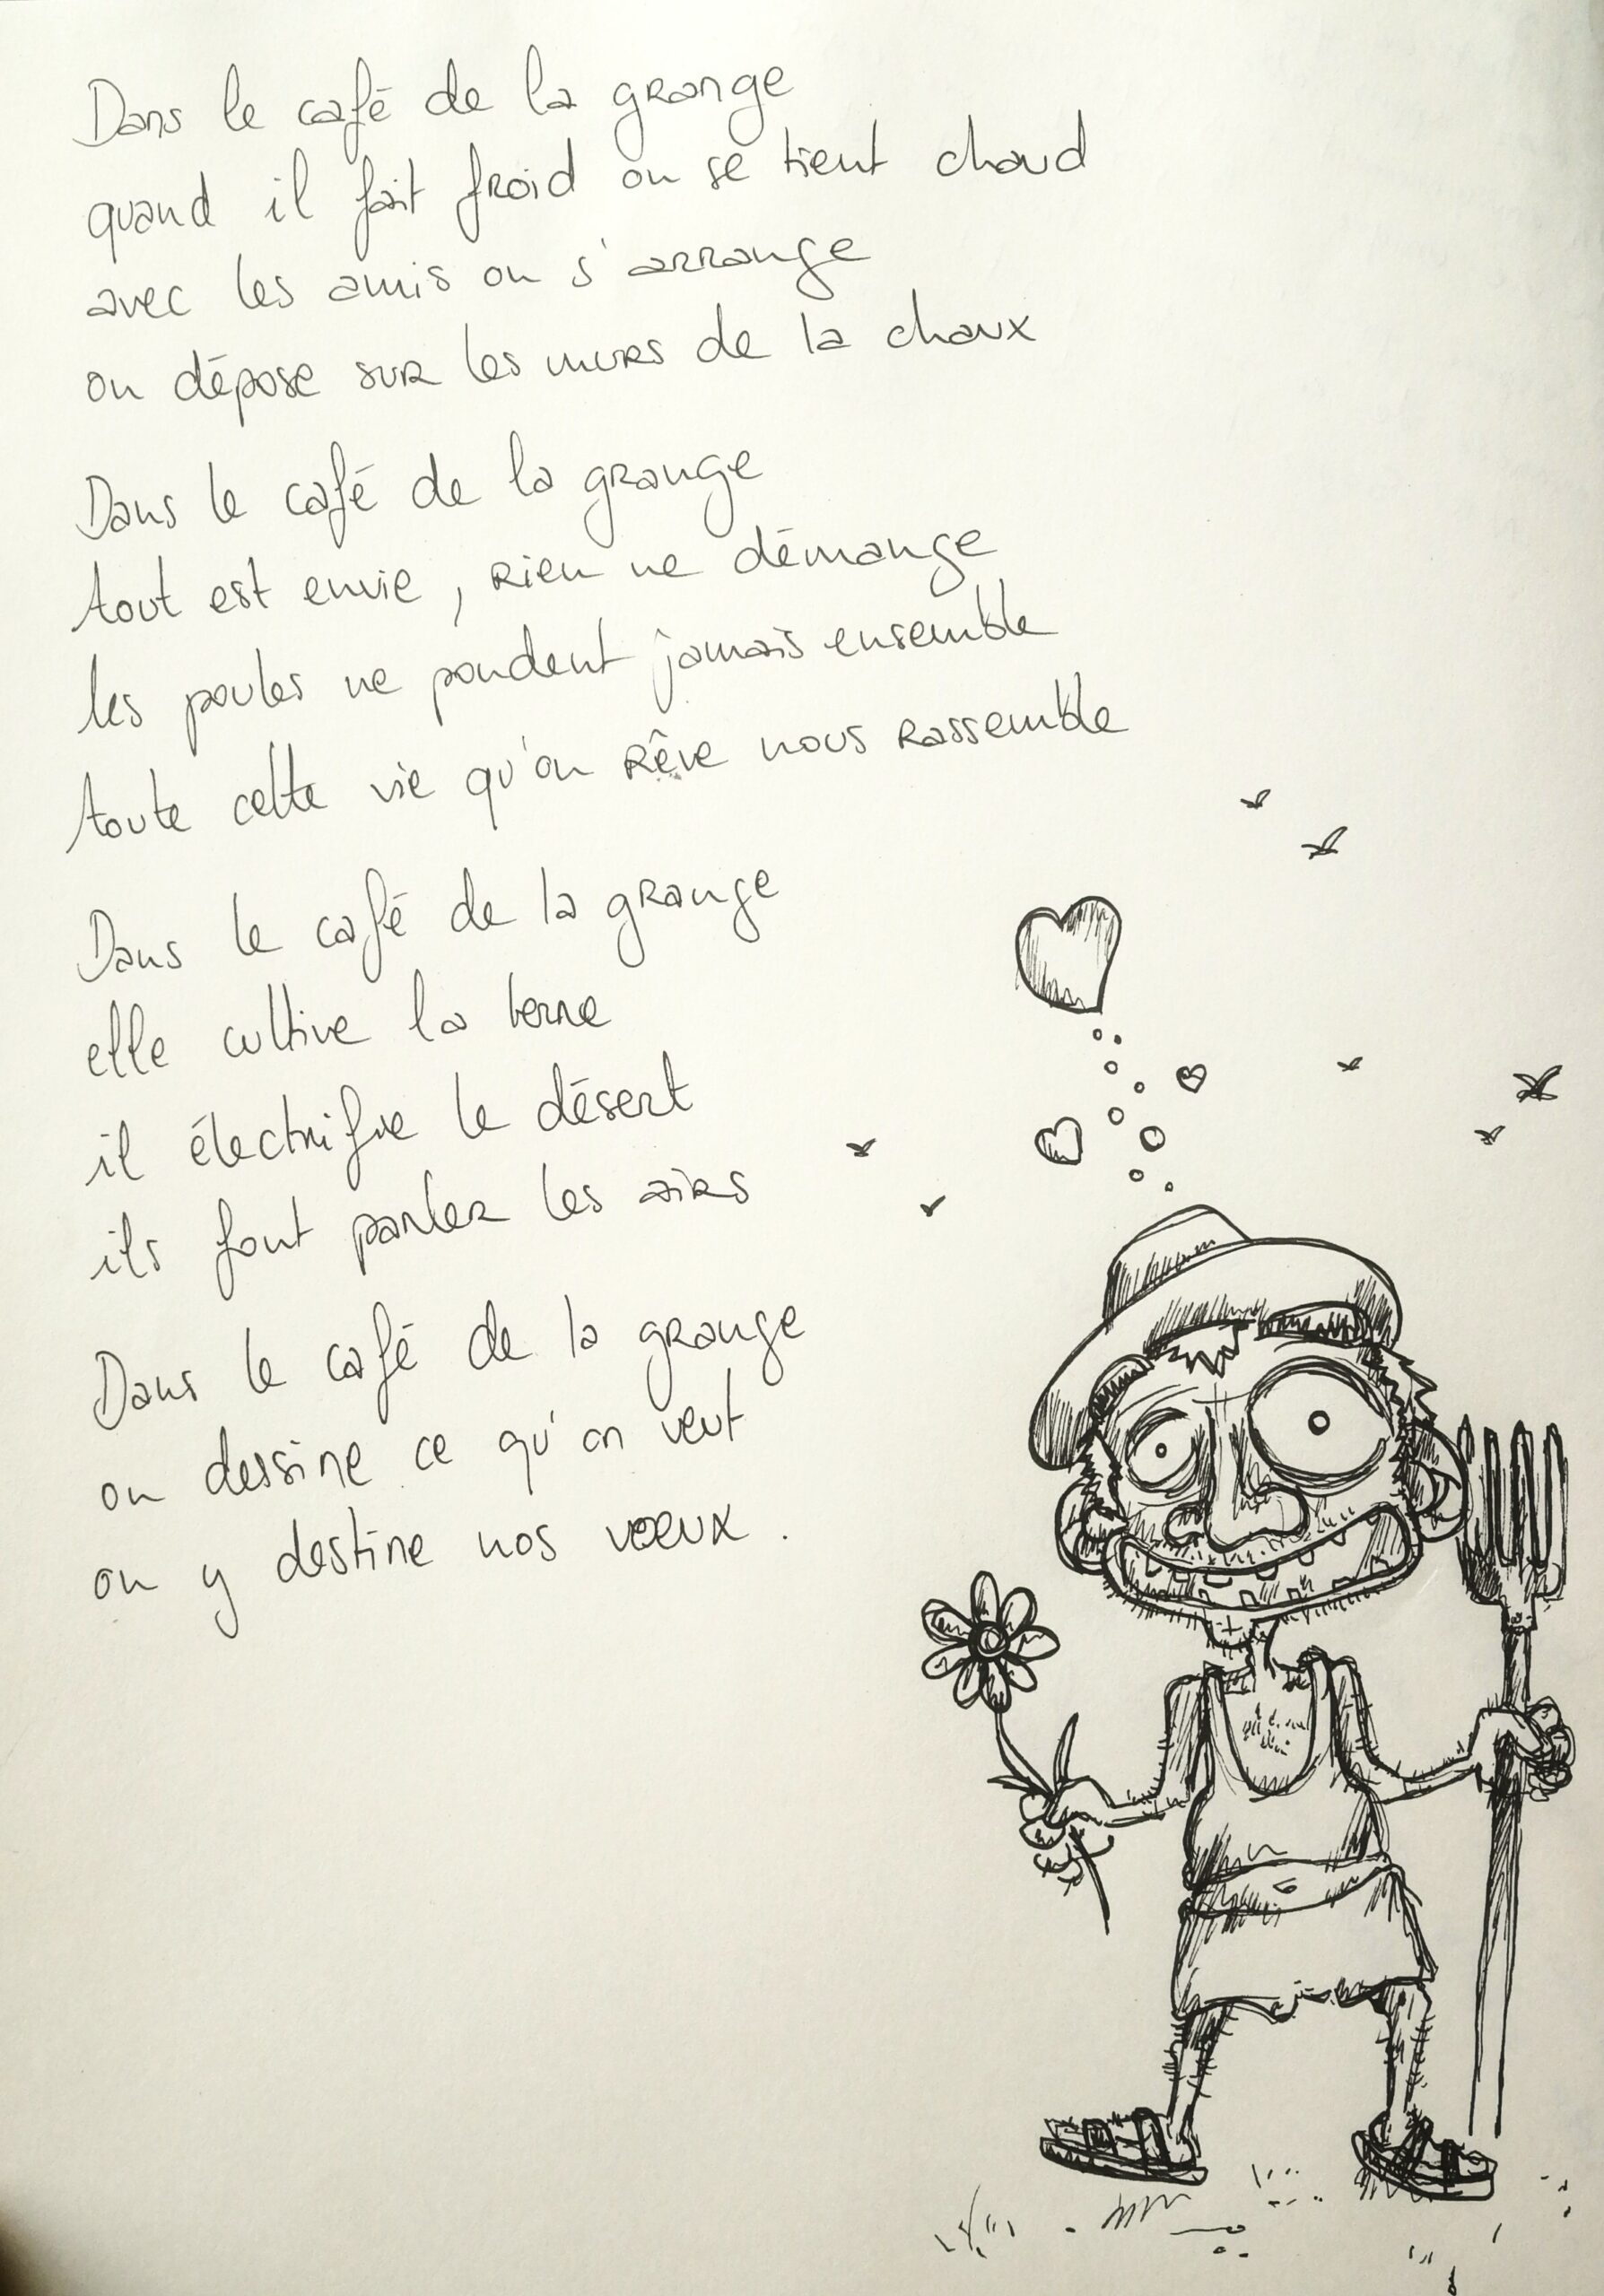 Dans le café de la grange
quand il fait froid on se tient chaud
avec les amis on s'arrange
on dépose sur les murs de la chaux
Dans le café de la grange
tout est envie, rien ne démange
les poules ne pondent jamais ensemble
toute cette vie qu'on rêve nous rassemble
Dans le café de la grange
elle cultive la terre
il électrifie le désert
ils font parler les airs
Dans le café de la grange
on dessine ce qu'on veut
on y destine nos vœux.